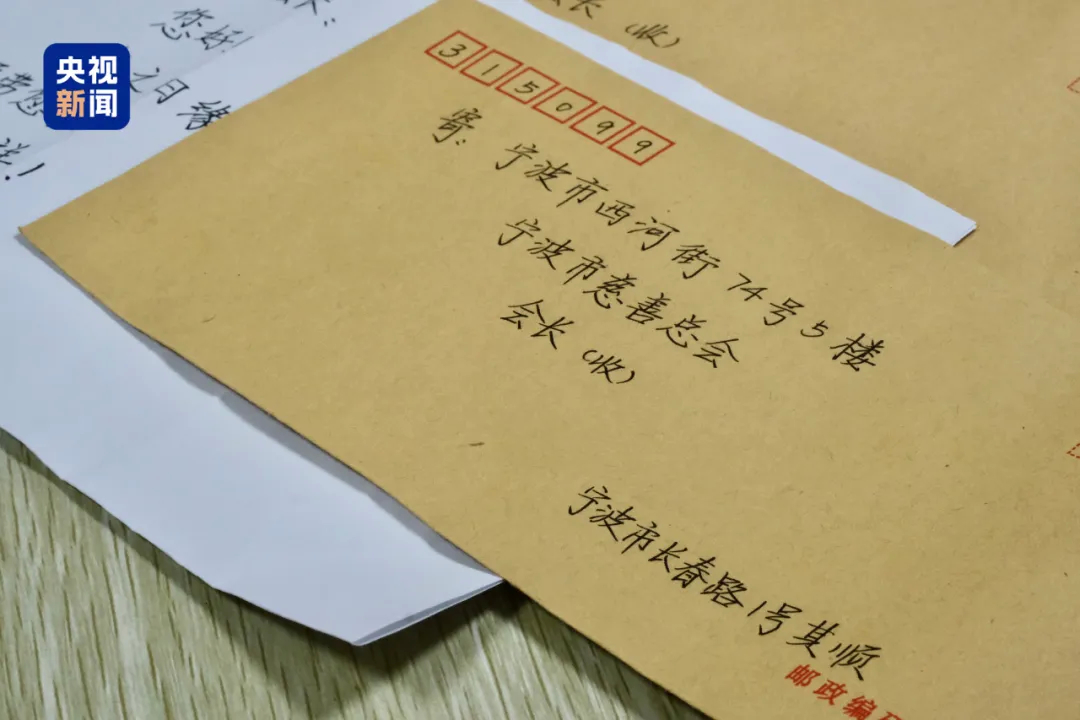 央视
新闻
您好!
之日缘
会长(收)
315099
寄:
宁波市西河街74号5楼
宁波市慈善总会
会长(收)
宁波市长春路1号其顺
邮政编